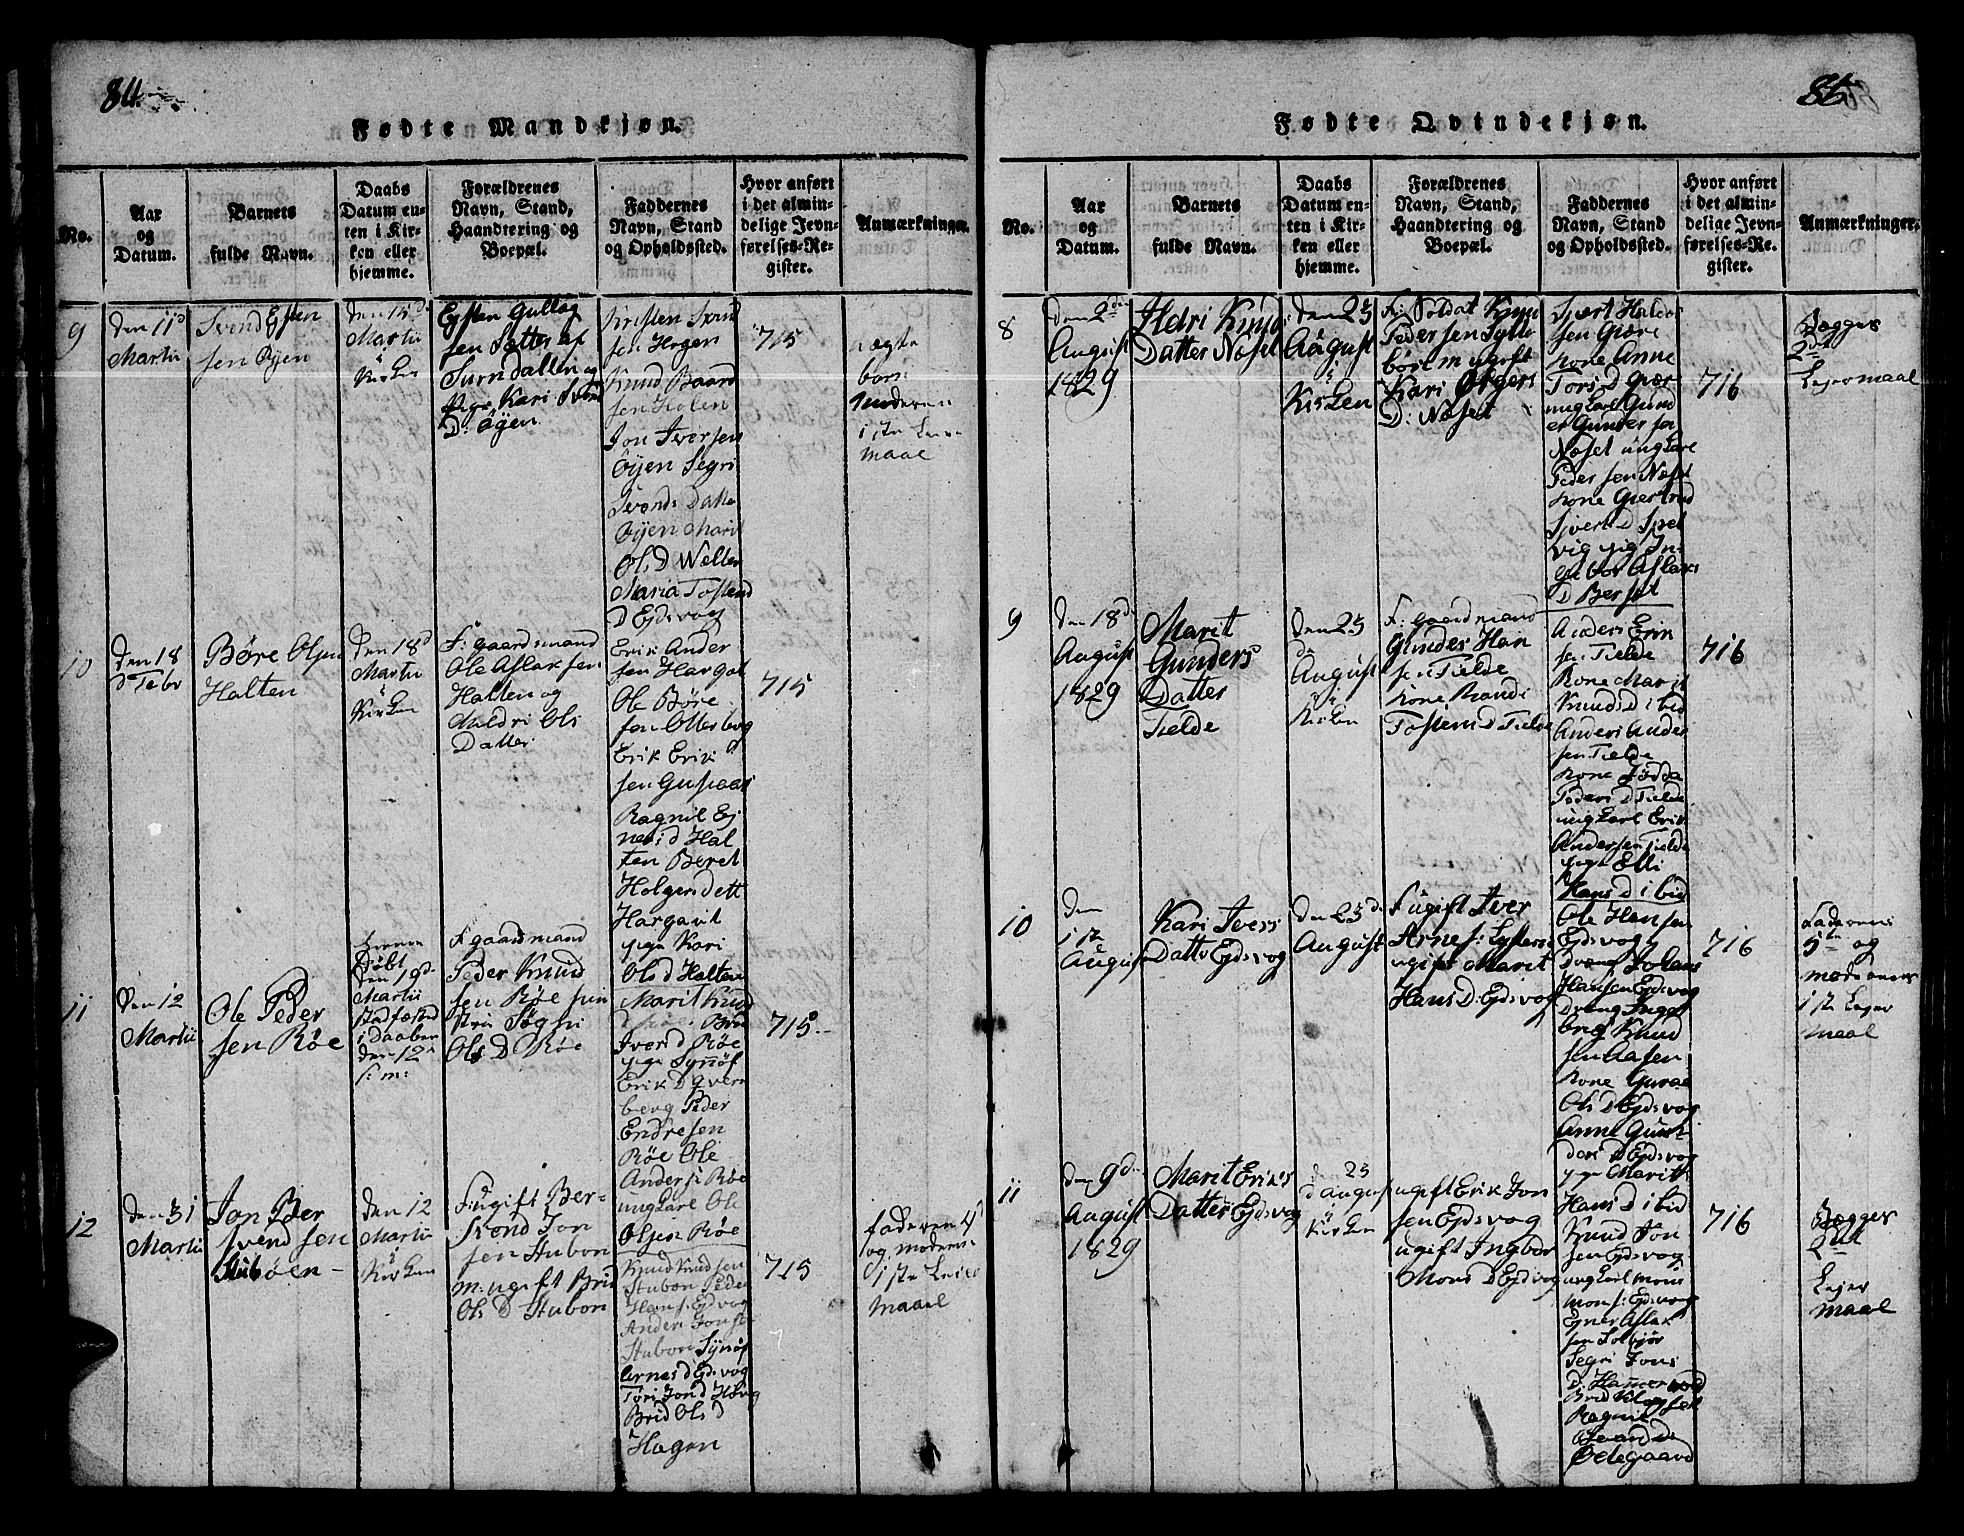 84.
Fødte Mandkjøn.
No.
Aar
og
Datum.
Barnets
fulde Navn.
Daabs
Datum en-
ten i Kir-
ken eller
hjemme.
Forældrenes
Navn, Stand,
Haandtering og
Boepæl.
Faddernes
Navn, Stand
og Opholdssted.
Hvor anført
i det almin-
delige Jevn-
førelses-Re-
gister.
Anmærkninger.
9
den 11d
Martii
Svend Eysten
sen Øyen
den 15d
Martii
i
Kirken
Eysten Gullag
sen Sætter af
Surndallen og
Pige Kari Svend
D: Øyen
Kristen Svend
sen Hogen
Knud Baard
sen Holen
Jon Iversen
Øyen Segri
Svends Datte
Øyen Marit
Ols D Wollen
Maria Tostend
D Ejdsvog
715
uægte
barn
moderen
1ste Leier
maal
10
den 18
d Febr
Børe Olsen
Halten
den 18d
Martii
i
Kirken
F: gaardsmand
Ole Aslaksen
Halten og
Meldri Ols
Datter
Erik Ander
sen Hargot
Ole Børe
sen Otterbog
Erik Erik
sen Gusiaas
Ragnil Ej
nersd Hal
ten Beret
Holgersdett
Hargavit
pige Kari
Ols D Halten
715
11
den 12
Martii
Ole Peder
sen Røe
hiemme
Døbt
den 19d
Martii
stadfæsted
i Daaben
den 12
s: m:
F gaardmand
Peder Knud
sen Røe
Søgni
Ols D Røe
Marit Knud
Brid
Iversd Røe
pige Synnøf
Erik D Qvern
berg Peder
Endresen
Røe Ole
Anders: Røe
ungkarl Ole
Olsen Røe
715.
12
den 31
Martii
Jon Ber
svend sen
Stubøen
den 12
Martii
i
Kirken
F: ugift Ber-
svend Jon
sen Stubøn
m: ugift Brid
Ols D Stubøn
Knud Knudsen
Stubøn Peder
Hans: Ejdsvog
Anders Jons:
Stubøn Synøf
Arnesd Ejdsvog
Tøri Jond Høvig
Brid Ols d
Hagen
715
faderen 4d
og moderens
1ste Leier
maal
85
Fødte Qvindekjøn.
No.
Aar
og
Datum.
Barnets
fulde Navn.
Daabs
Datum en-
ten i Kir-
ken eller
hjemme.
Forældrenes
Navn, Stand,
Haandtering og
Boepæl.
Faddernes
Navn, Stand
og Opholdssted.
Hvor anført
i det almin-
delige Jevn-
førelses-Re-
gister.
Anmærkninger.
8
den 2d
August
1829
Ildri Knud
Datter Nøset
den 23
August
i
Kirken
F: Soldat Knud
Pedersen Sylte
bør m ugift
Kari Holgers
D: Nøset
Sjvert Haldor
sen Giære
kone Anne
Tors D Giære
ungkarl Gund
er Gundersen
Nøset ungkarl
Pedersen Nøset
kone Giertrud
Sjvert D Spel
vig pige In-
gebor Aslaks
D Berset
716
Begges
2det
Lejermaal
9
den 18d
August
1829
Marit
Gunders
Datter
Tielde
den 23
August
i
Kirken
F: gaardmand
Gunder Han
sen Tielde
kone Randi
Tosten D Tielde
Anders Erik
sen Tielde
kone Marit
Knuds D ibid
Anders Ander
sen Tielde
kone Gødda
Peders D Tielde
ungkarl Erik
Andersen Tielde
pige Elli
Hans D ibid
716
10
den
1ste
August
Kari Ivers
Datte Ejdsvog
den 23d
August
F ugift Iver
Arnes:
ugift Marit
Hans D: Ejdsvog
Ole Hansen
Ejdsvog
dreng Johans
Hansen Ejdsvog
Dreng Ingel
brigt Knud
sen Aasen
kone Guroe
Ols D Ejdsvog
Anne Gun
ders D Ejdsvog
pige Maritt
Hans D ibid
716
Faderens
5te og
moderens
1ste Lejer
maal
11
den 9d
August
1829
Marit Eriks
Datter Ejdsvog
den 23
d August
i
Kirken
ugift Erik Jon
sen Ejdsvog
ugift Ingbor
Mons D Ejdsvog
Knud Jon
sen Ejdsvog
ungkarl Mons
Mons: Ejdsvog
Ejner Aslak
sen Solbjør
Segri Jons
D. Hammervold
Brid
Ragnil
Ødegaard
716
Begges
2det
Lejer
maal